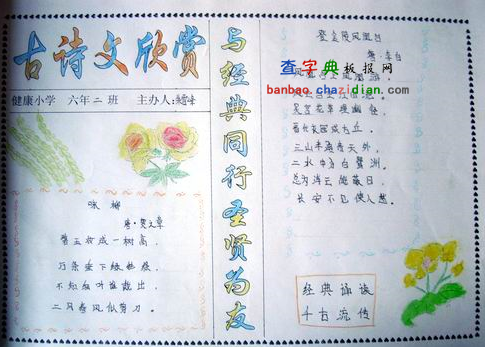 古诗文欣赏
健康小学 六年二班 主办人:
咏柳
唐·贺章
碧玉妆成一树高,
万条垂下绿丝绦。
不知细叶谁裁出
二月春风似剪刀。
与经典同行圣贤为友
登金陵凤凰台
唐·李白
凤凰台上凤凰游,
查字典板报网
banbao.chazidian.com
吴宫花草埋幽径,
晋代衣冠成古丘,
三山半落青天外,
二水中分白鹭洲。
总为浮云能蔽日,
长安不见使人愁。
经典诵读
千古流传